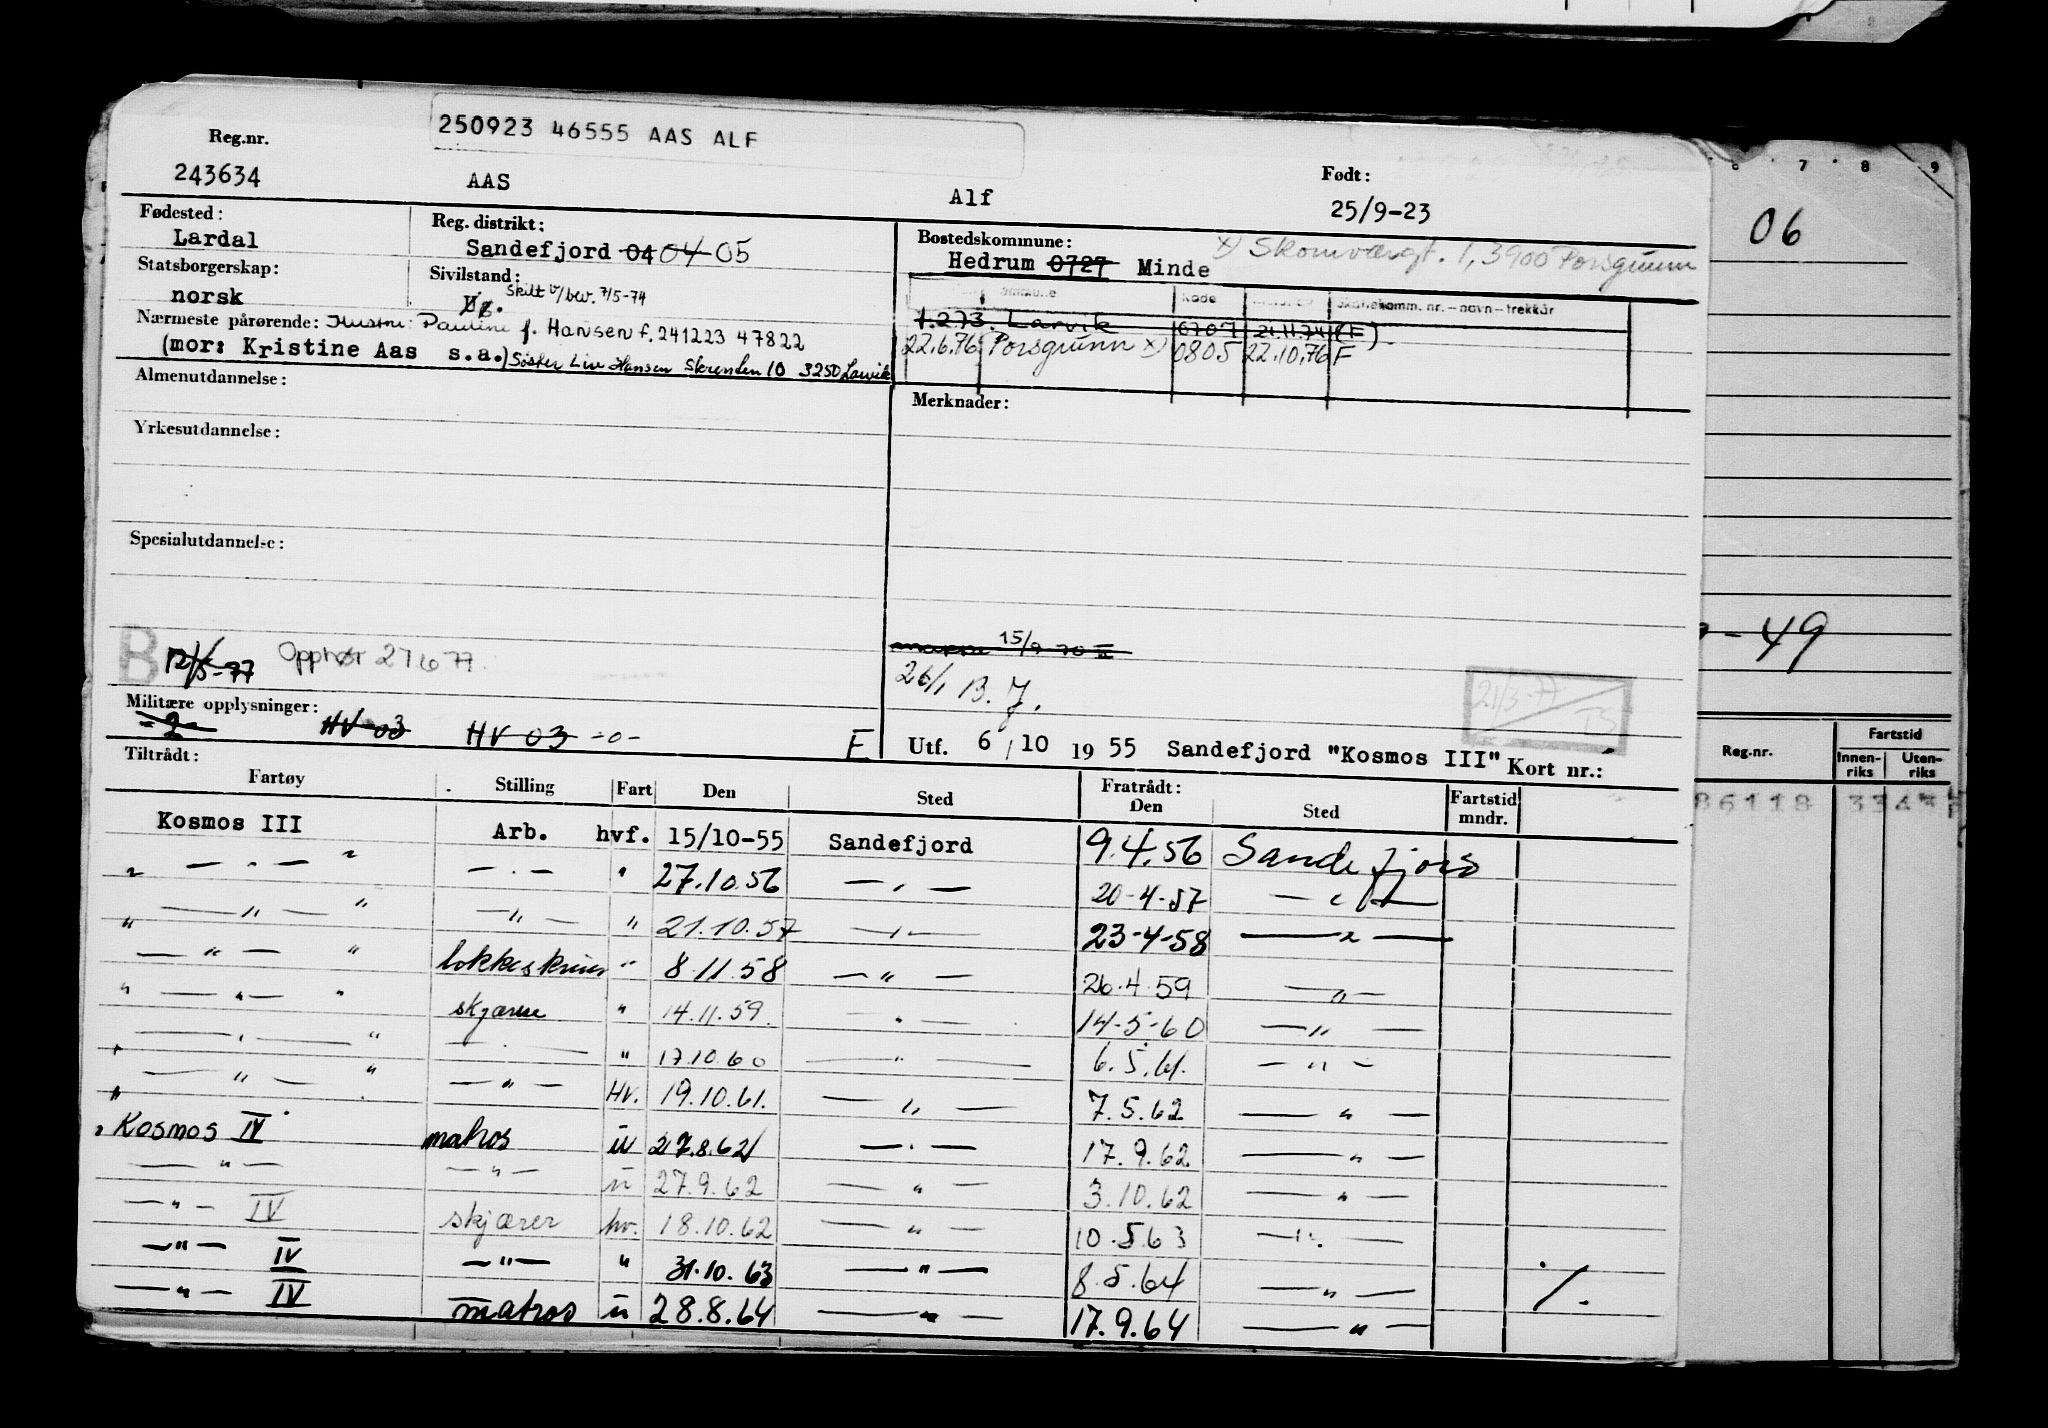 250923 46555 AAS ALF
Reg.nr.
243634 AAS Alf
Født:
25/9-23
Fødested:
Lardal
Reg. distrikt:
Sandefjord 04 04 05
Bostedskommune:
Hedrum 0727 Minde
x) Skomværgt. 1, 3900 Porsgrunn
Statsborgerskap:
norsk
Sivilstand:
Skilt v/bev. 7/5-74
Nærmeste pårørende: Hustru Pauline f. Hansen f. 241223 47822
(mor: Kristine Aas s.a.) Søster Liv Hansen Skrenten 10 3250 Larvik
Kode
Skattekomm. nr. – navn – trekkår
1.273. Larvik 0707 21.11.74 (F)
22.6.76 Porsgrunn x) 0805 22.10.76 F
Almenutdannelse:
Merknader:
Yrkesutdannelse:
Spesialutdannelse:
B 12/5-77 Opphør 27677
15/9 70
26/1 B. J.
21/3-77
TS
Militære opplysninger:
-2- HV-03 HV 03 -0- F
Utf. 6/10 1955 Sandefjord "Kosmos III" Kort nr.:
Tiltrådt:
Fartøy Stilling Fart Den Sted Fratrådt: Den Sted Fartstid mndr.
Kosmos III Arb. hvf. 15/10-55 Sandefjord 9.4.56 Sandefjord
" — " — " — . — " 27.10.56 — " — 20-4-57 — " —
" — " — " — " — " 21.10.57 — " — 23-4-58 — " —
— " — " " 8.11.58 — " — 26.4.59 — " —
" — " — " " 14.11.59. — " — 14-5-60 — " —
— " — " — . — " 17.10.60 — " — 6.5.61. — " —
" — " — " — " — Hv. 19.10.61. — " — 7.5.62 — " —
" Kosmos IV matros u 27.8.62 — " — 17.9.62 — " —
— " — — " — u 27.9.62 — " — 3.10.62 — " —
— " — IV skjærer hv. 18.10.62 — " — 10.5.63 — " —
— " — IV — " — " 31.10.63 — " — 8.5.64 — " — ./.
— " — IV matros u 28.8.64 — " — 17.9.64 — " —
6 7 8 9
06
- 49
Reg.nr.
Fartstid
Innen-riks Uten-riks
86118